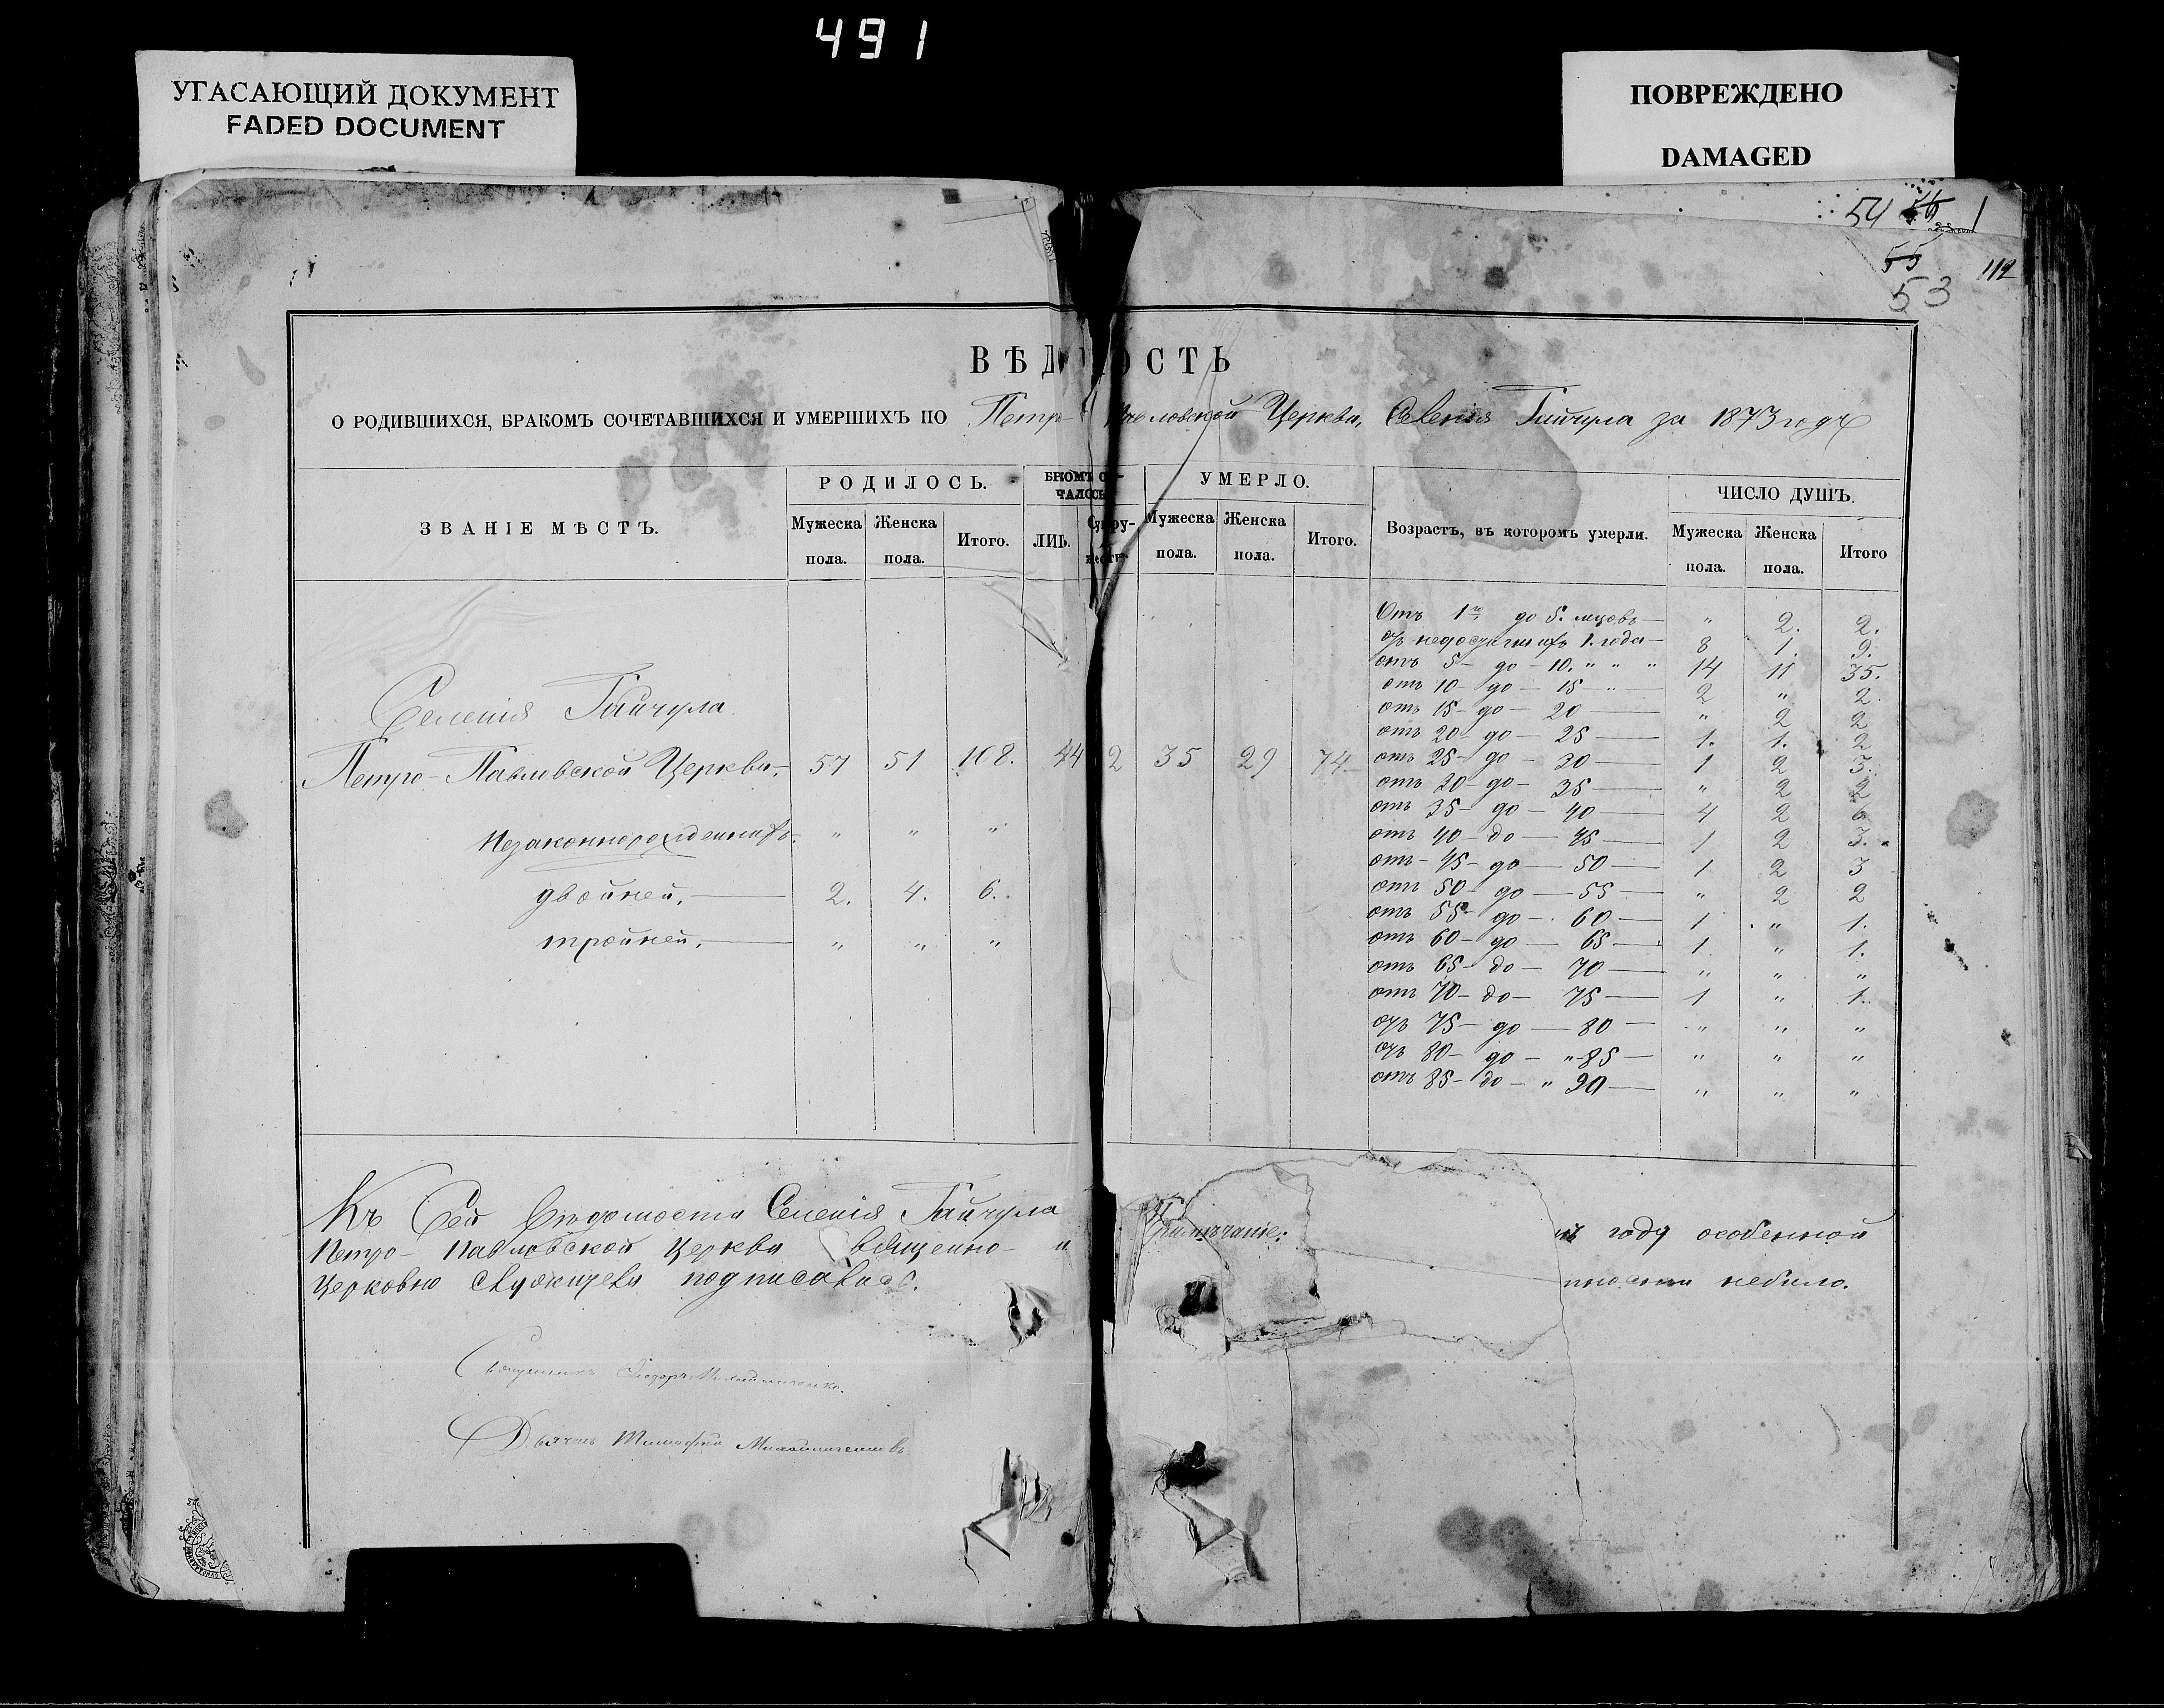 491
УГАСАЮЩИЙ ДОКУМЕНТ
FADED DOCUMENT
ПОВРЕЖДЕНО
DAMAGED
54
55
53
112
ВѢД ОСТЬ
О РОДИВШИХСЯ, БРАКОМЪ СОЧЕТАВШИХСЯ И УМЕРШИХЪ ПО Петро- Павловской Церкви, Селенія Гайчула за 1873 годъ
ЗВАНІЕ МѢСТЪ.
РОДИЛОСЬ.
Мужеска пола.
Женска пола.
Итого.
БРКОМЪ СО-
ЧАЛОСЬ
ЛИЦ.
Супру-
УМЕРЛО.
Мужеска пола.
Женска пола.
Итого.
Возрастъ, въ которомъ умерли.
ЧИСЛО ДУШЪ.
Мужеска пола.
Женска пола.
Итого
Селенія Гайчула
Петро-Павловской Церкви 57 51 108. 44 2 35 29 74
Незаконнорожденныхъ " " "
двойней, — 2. 4. 6.
тройней, — " " "
Отъ 1го до 5. мцовъ — " 2. 2.
недостигшихъ 1. года — 8 1. 9.
отъ 5 — до — 10. " " " 14 11 35.
отъ 10 — до — 15 — " — 2 " 2.
отъ 15 — до — 20 — " 2 2
отъ 20 — до — 25 — 1. 1. 2
отъ 25 — до — 30 — 1 2 3.
отъ 30 — до — 35 — " 2 2
отъ 35 — до — 40 — 4 2 6
отъ 40 — до — 45 — 1 2 3.
отъ — 45 — до — 50 — 1 2 3
отъ 50 — до — 55 — " 2 2
отъ 55 — до — 60 — 1 " 1.
отъ 60 — до — 65 — 1. " 1.
отъ 65 — до — 70 — " " "
отъ 70 — до — 75 — 1 " 1.
отъ 75 — до — 80 — " " "
отъ 80 — до — " 85 — " " "
отъ 85 — до — " 90 — " " "
Къ Сей Вѣдомости Селенія Гайчула
Петро-Павловской Церкви Священно- и
Церковно служители подписались.
Священникъ Феодоръ
Дьячекъ Тимофей
Примѣчаніе:
году особенной
небыло.